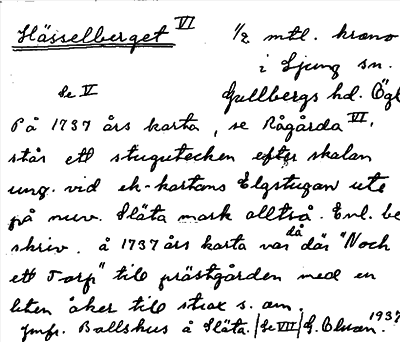 Hässelberget VI 1/2 mtl. krono
i Ljung sn.
Se V Gullbergs hd. Ögl
På 1737 års karta, se Rågårda VI,
står ett stugutecken efter skalan
ung. vid ek-kartans Elgstugan ute
på nuv. Släta mark alltså. Enl. be
skriv. å 1737 års karta var då där "Noch
ett Torp" till prästgården med en
liten åker till strax s. om.
Jmfr. Ballshus å Släta. / Se VII / G. Olsson. 1937